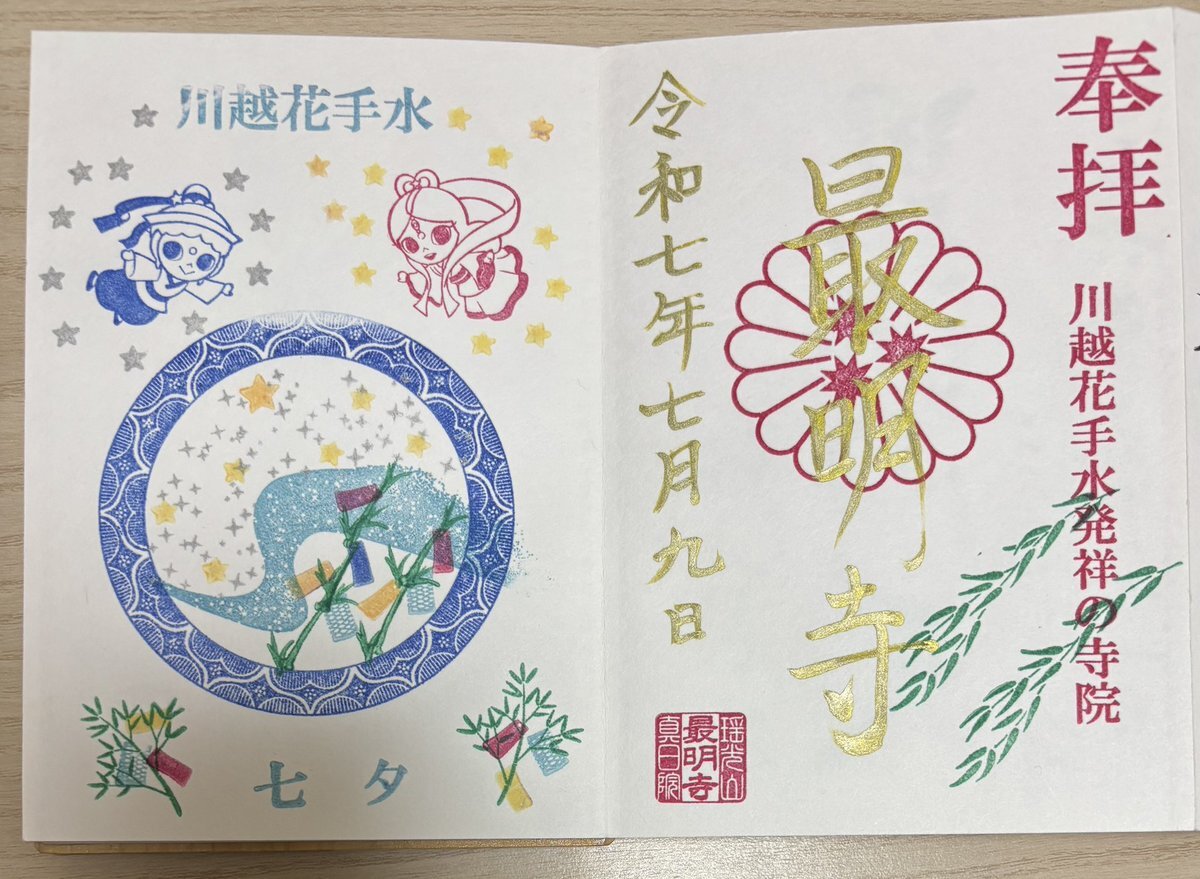 奉拝
川越花手水発祥の寺院
最明寺
令和七年七月九日
瑶光山
最明寺
真目院
川越花手水
七夕